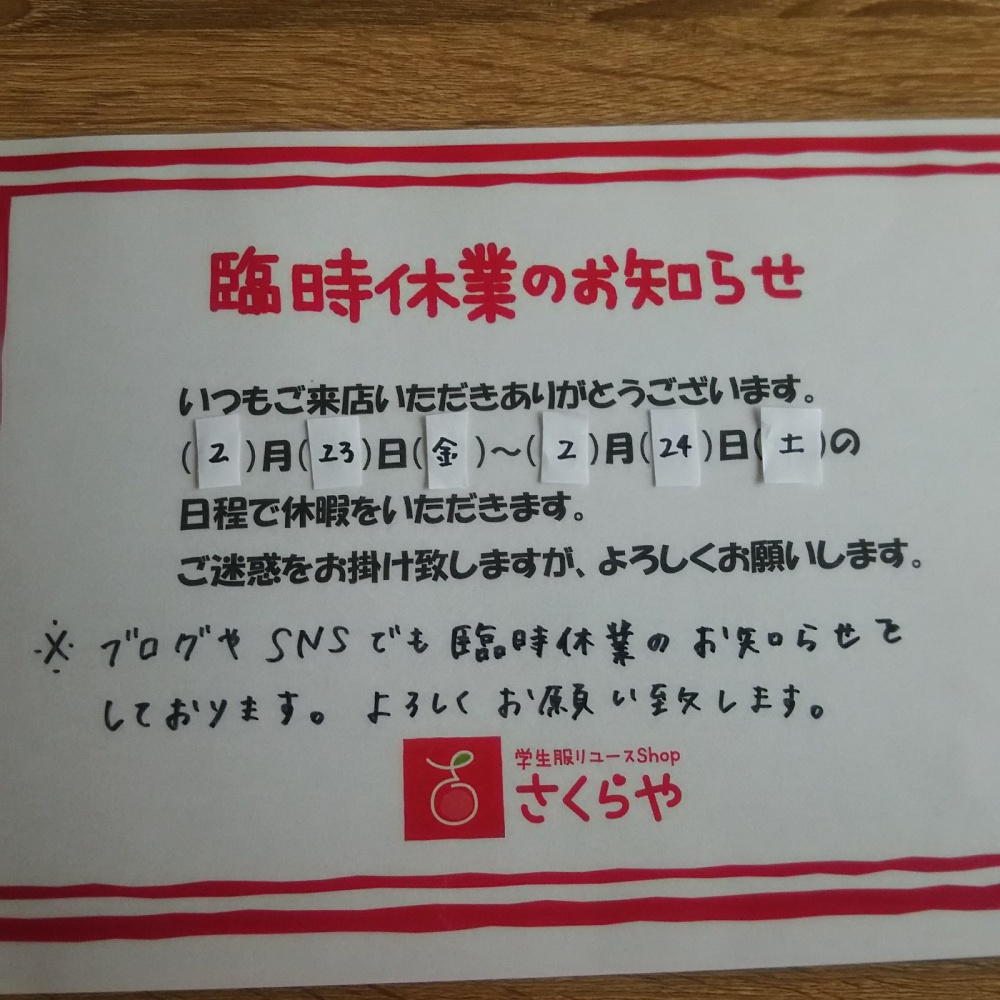 臨時休業のお知らせ
いつもご来店いただきありがとうございます。
(2)月(23)日(金)～(2)月(24)日(土)の
日程で休暇をいただきます。
ご迷惑をお掛け致しますが、よろしくお願いします。
※ ブログやSNSでも臨時休業のお知らせを
しております。よろしくお願い致します。
学生服リユースShop
さくらや